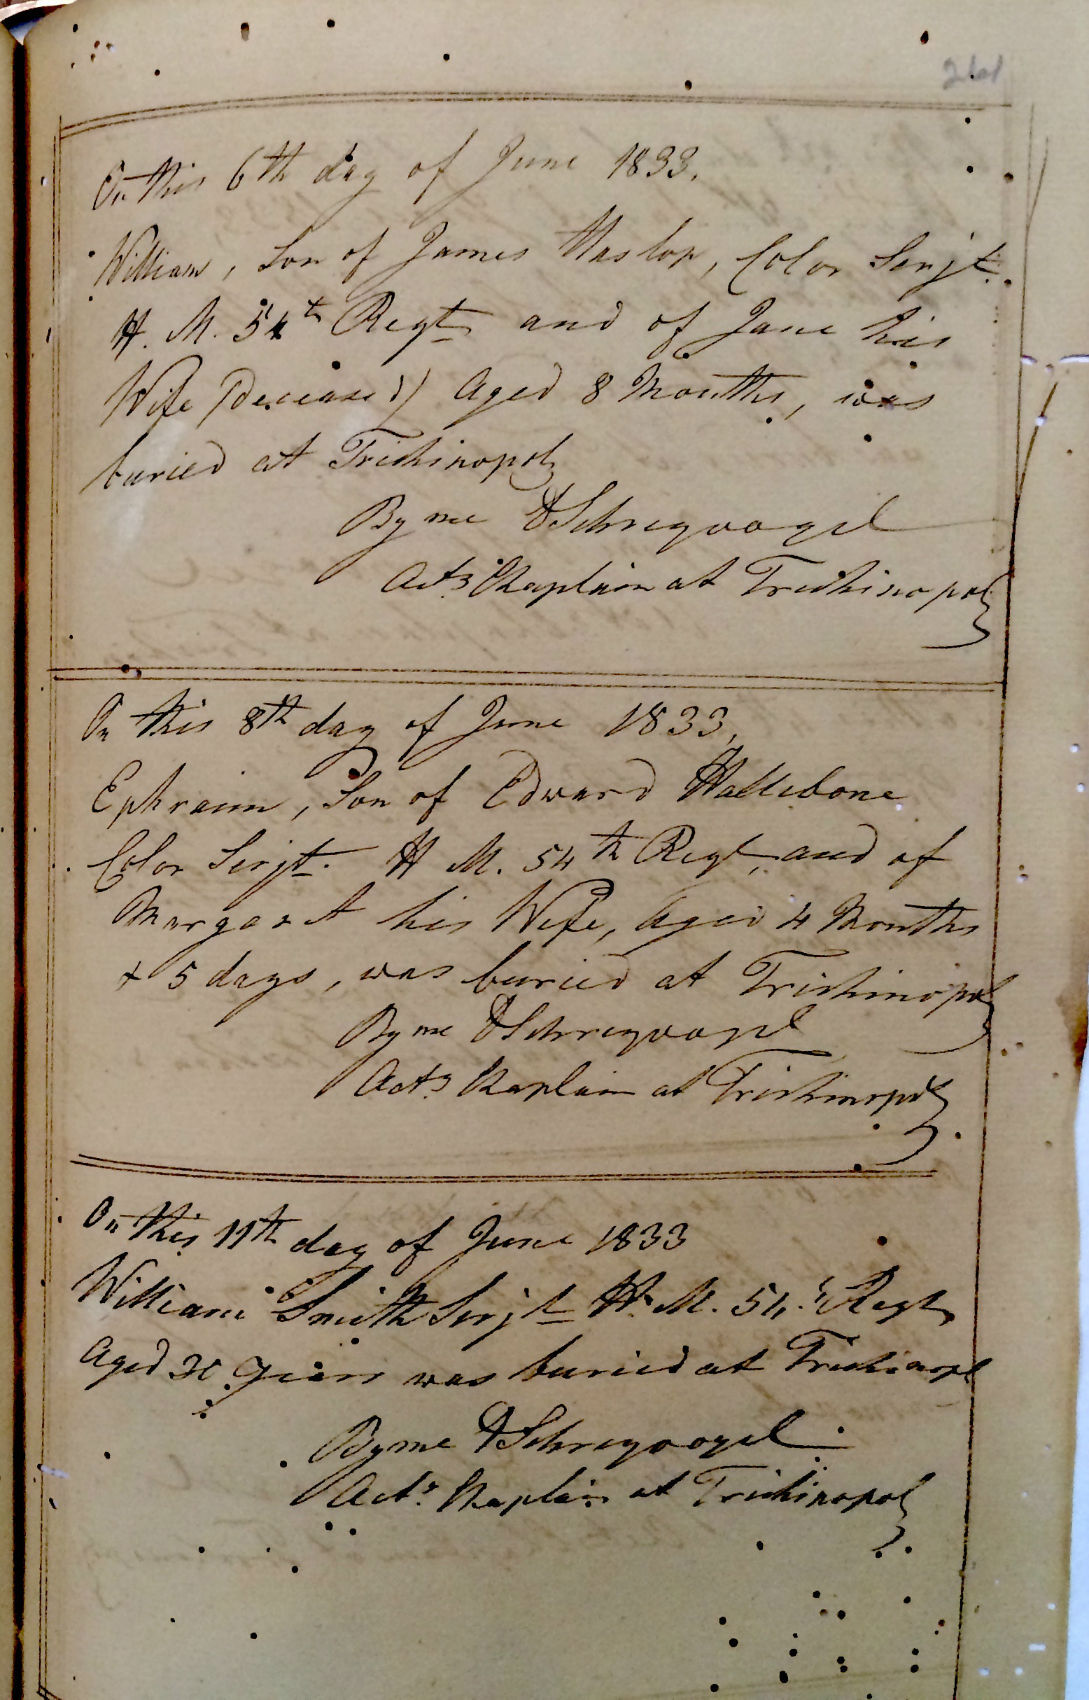 On this 6th day of June 1833.
William, Son of James Haslop, Color Serjt.
H. M. 54th Regt and of Jane his
Wife (Deceased) Aged 8 Months, was
buried at Trichinopoly
By me Schreyvogel
Actg Chaplain at Trichinopoly
On this 8th day of June 1833,
Ephraim, Son of Edward Hallebone
Color Serjt. H M. 54th Regt, and of
Margaret his Wife, Aged 4 Months
& 5 days, was buried at Trichinopoly
By me Schreyvogel
Actg Chaplain at Trichinopoly
On this 11th day of June 1833
William Smith Serjt H. M. 54 Regt
Aged years was buried at Trichinopoly
By me Schreyvogel
Actg Chaplain at Trichinopoly